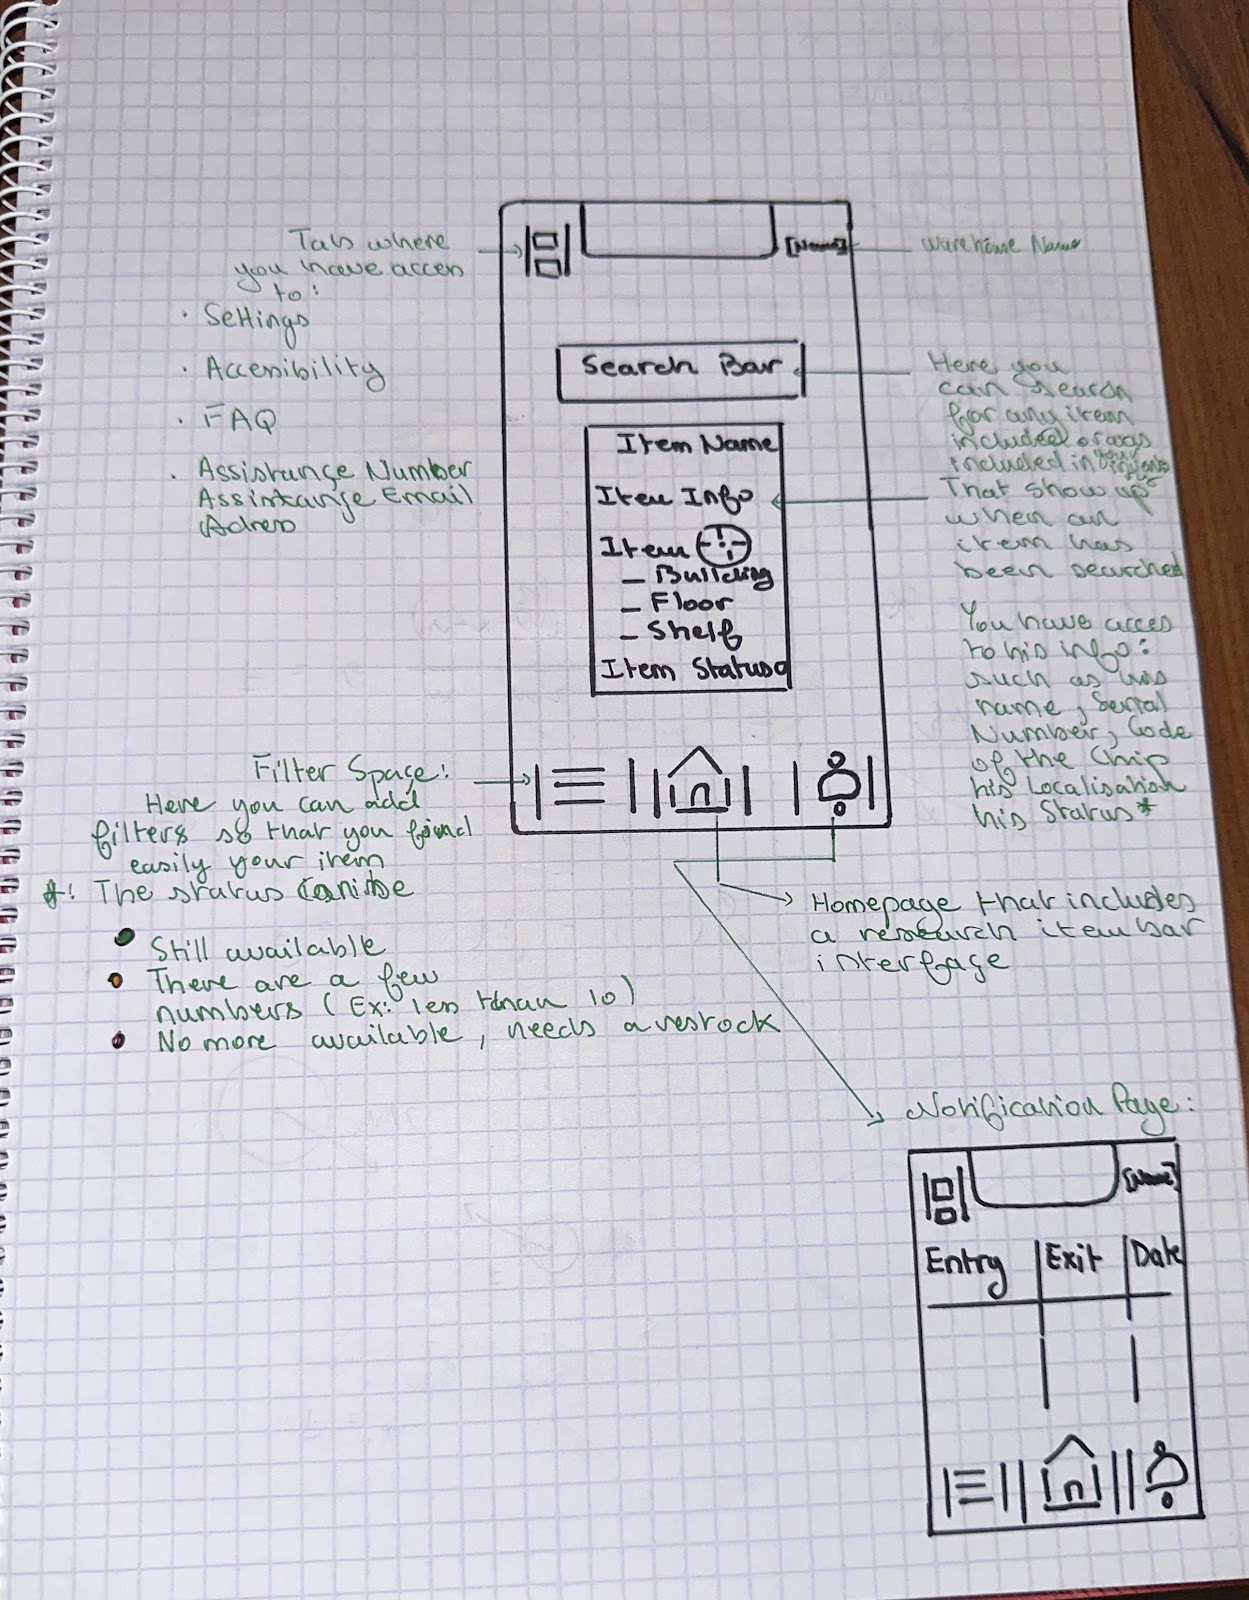 Tab where
you have acces
to:
· Settings
· Accesibility
· FAQ
· Assistance Number
Assistance Email
Adress
[Name]
Warehouse Name
Search Bar
Here you
can search
for any item
included or was
included in your
Item Name
Item Info
Item
- Building
- Floor
- Shelf
Item Status
That show up
when an
item has
been searched
You have acces
to his info:
such as his
name, Serial
Number, Code
of the Chip
his Localisation
his Status*
Filter Space:
Here you can add
filters so that you found
easily your item
*: The status can be
Still available
There are a few
numbers (Ex: less than 10)
No more available, needs a restock
Homepage that includes
a research item bar
interface
Notification Page:
[Name]
Entry Exit Date